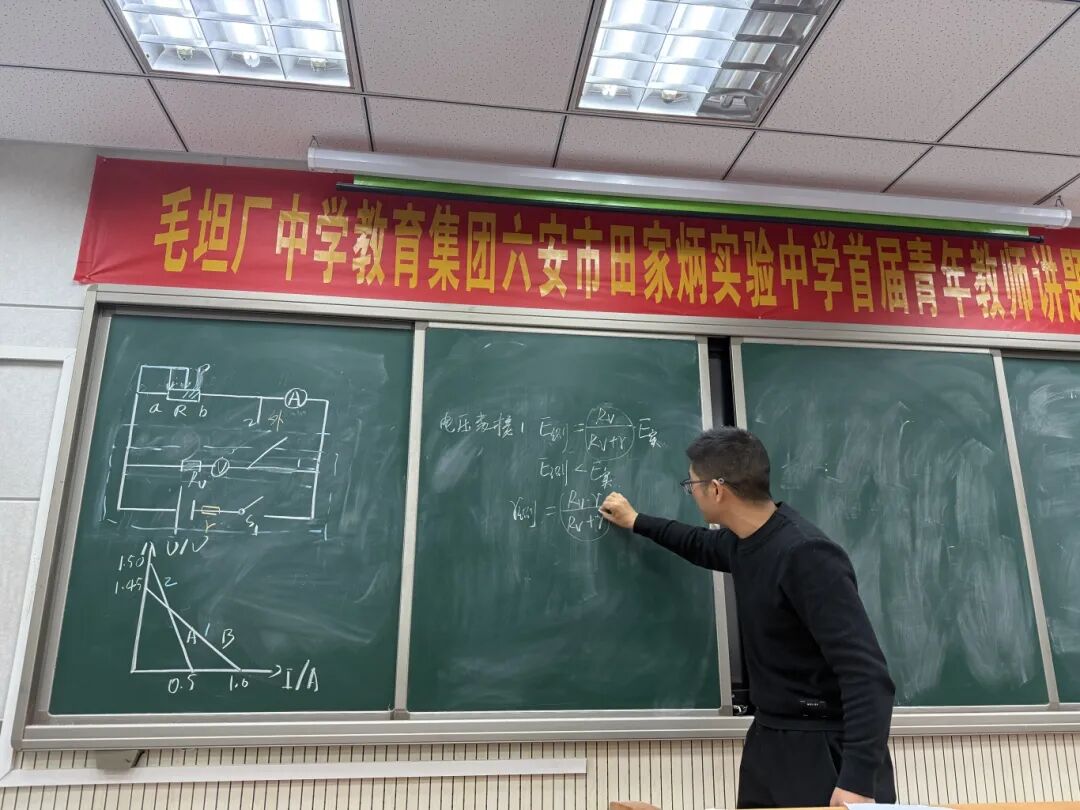 毛坦厂中学教育集团六安市田家炳实验中学首届青年教师讲题
P
a R b
A
2
Rv V
r S1
U/V
1.50
1.45
2
A 1 B
0.5 1.0 I/A
E测 = Rv/(Rv+r) · E真
E测 < E真
r测 = Rv·r/(Rv+r)